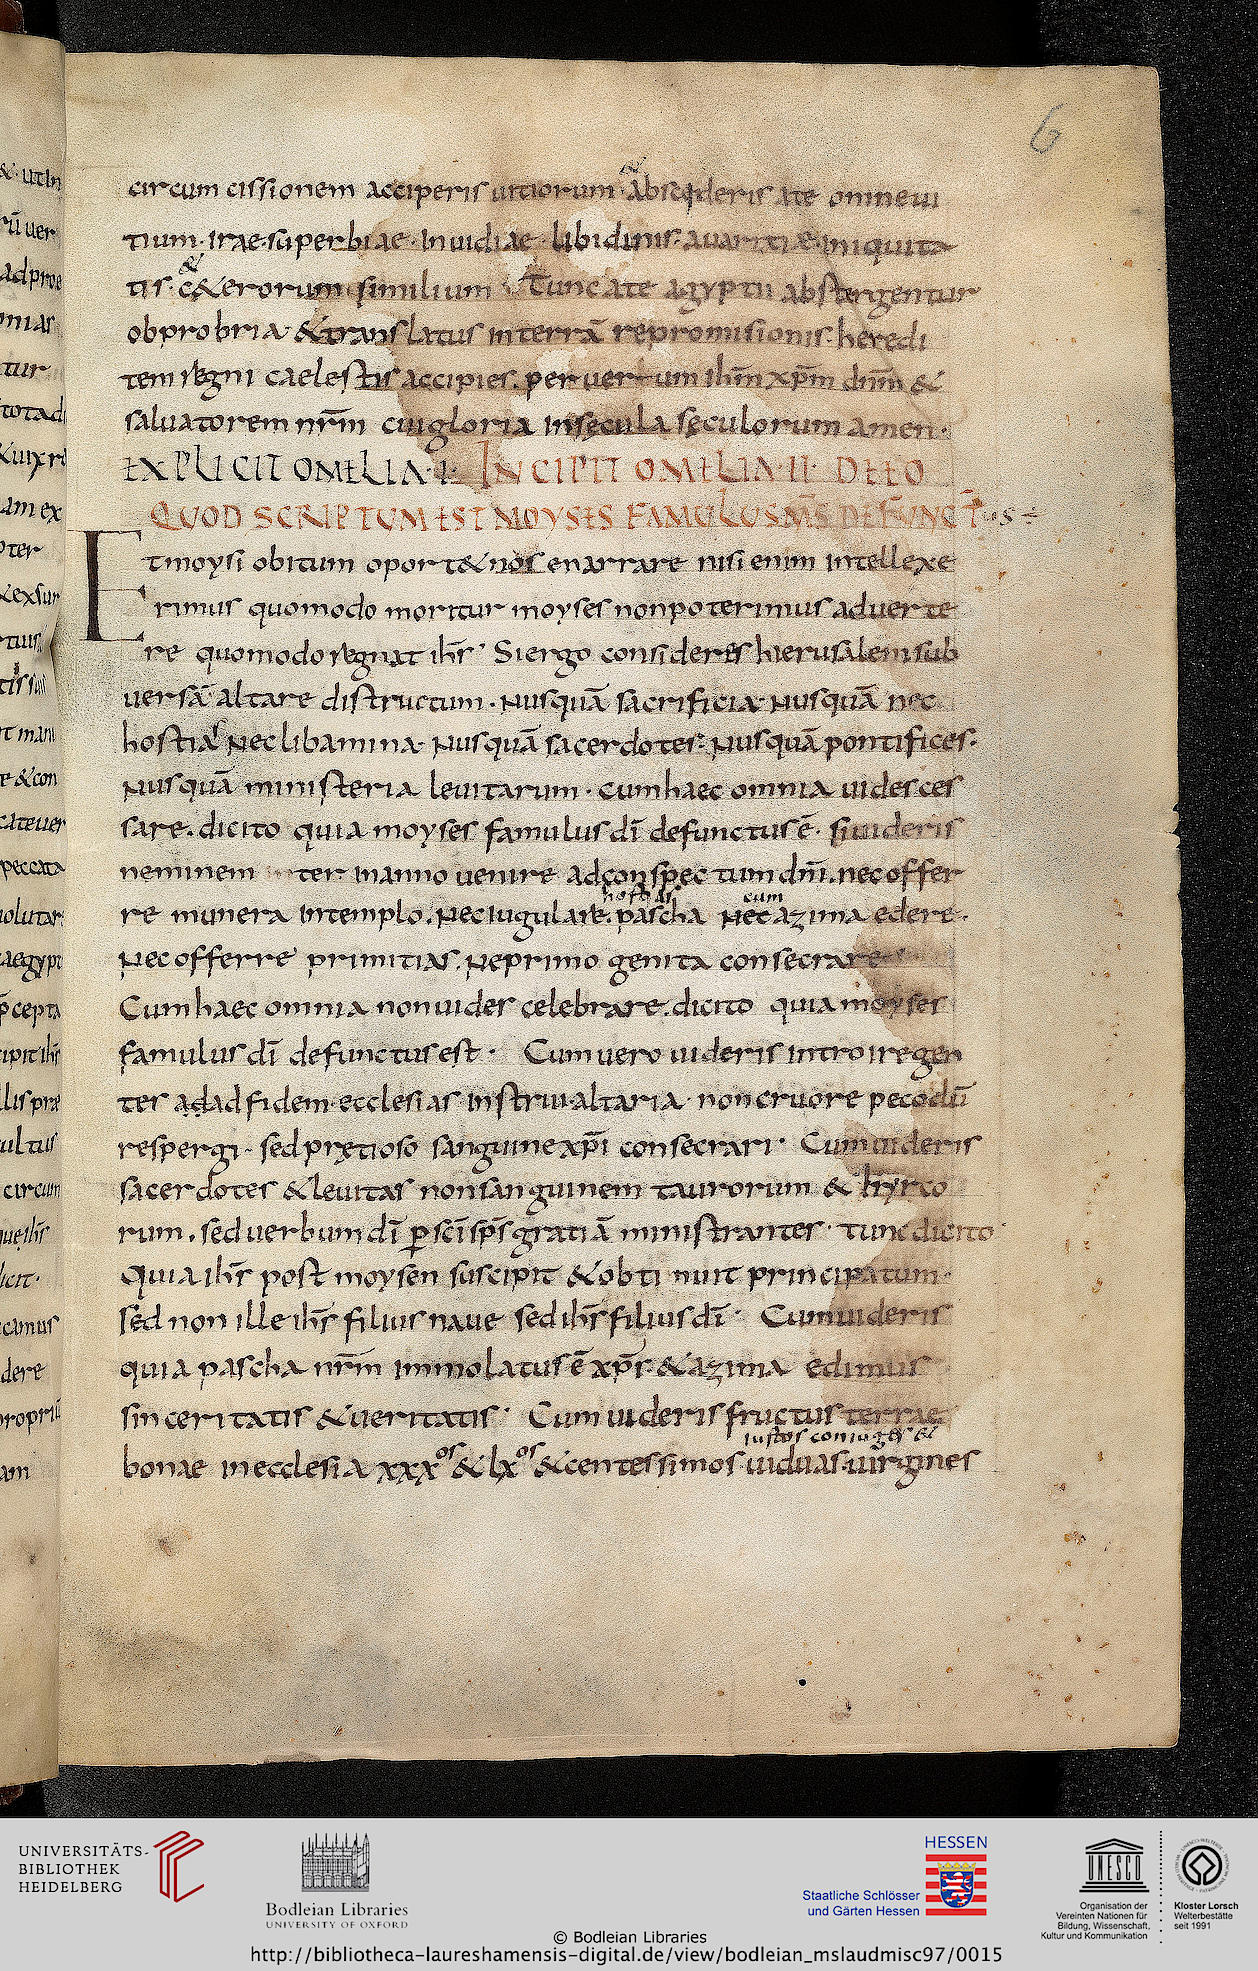 6
circumcissionem acciperis uitiorum · & absciderís ate omneui
tium · irae · superbiae · inuidiae · libidinis · auaritiae · iniquita
tis · & c&erorum similium Tunc ate agyptii abstergentur
obprobria · & translatus interrā repromisionis · heredi
tem regni caelestis accipies · peruer tum ihm̄ xp̄m dn̄m &
saluatorem nr̄m cui gloria insęcula sęculorum amen ·
EXPLICIT OMELIA · I · INCIPIT OMELIA · II · DE EO
QUOD SCRIPTUM EST MOYSES FAMULUS MS̄ DEFUNCTus
Et moysi obitum oport& nos enarrare nisi enim intellexe
rimus quomodo moritur moyses nonpoterimus aduerte
re quomodo regnat ihs̄ · Si ergo consideres hierusalem sub
uersā altare distructum · nusquā sacrificia · nusquā nec
hostiaſ nec libamina · nusquā sacerdotes · nusquā pontifices ·
nusquā ministeria leuitarum · cum haec omnia uides ces
sare · dicito quia moyses famulus dī defunctus ē · si uideris
neminem ter in anno uenire ad conspectum dn̄i · nec offer
hostias cum
re munera intemplo · nec iugulare · pascha nec azima edere ·
nec offerre primitias · ne primogenita consecrare
Cum haec omnia non uides celebrare · dicito quia moyses
famulus dī defunctus est · Cum uero uideris introire gen
ter adad fidem · ecclesias instrui · altaria · non cruore pecodū
respergi · sed pretioso sanguine xp̄i consecrari · Cum uideris
sacerdotes & leuitas non sanguinem taurorum & hyrco
rum · sed uerbum dī p̄ sc̄i sp̄s gratiā ministrantes · tunc dicito
Quia ihs̄ post moysen suscipit & obtinuit principatum ·
sed non ille ihs̄ filius naue sed ihs̄ filius dī · Cum uideris
quia pascha nr̄m immolatus ē xp̄s · & azima edimus
sinceritatis & ueritatis · Cum uideris fructus terrae
iustos coniuges &
bonae in ecclesia xxxos & lxos & centessimos uiduas · uirgines
UNIVERSITÄTS-
BIBLIOTHEK
HEIDELBERG
Bodleian Libraries
UNIVERSITY OF OXFORD
HESSEN
Staatliche Schlösser
und Gärten Hessen
UNESCO
Organisation der
Vereinten Nationen für
Bildung, Wissenschaft,
Kultur und Kommunikation
Kloster Lorsch
Welterbestätte
seit 1991
© Bodleian Libraries
http://bibliotheca-laureshamensis-digital.de/view/bodleian_mslaudmisc97/0015